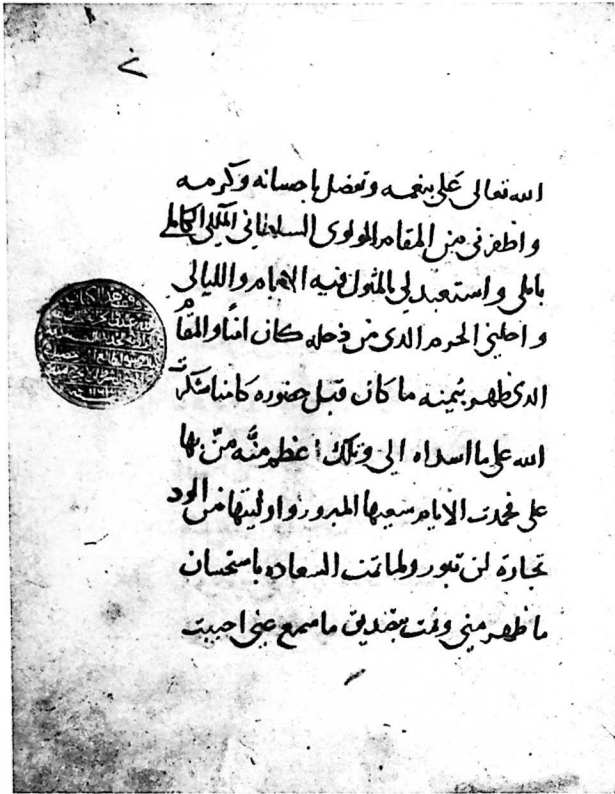 الله تعالى على بنعمه وتفضل باحسانه وكرمه
واظفرني من المقام المولوى السلطاني الملكي الكاملي
باملي واستعبد لي بالمثول فيه الايام والليالي
واحلني الحرم الدى من دخله كان امنا والمقام
الدى ظهر بيمنه ما كان قبل حضوره كامنا شكرت
الله على ما اسداه الي وتلك اعظم منّه منّ بها
على فحمدت الايام سعيها المبرور واوليتها من الود
تجارة لن تبور ولما تمت السعاده باستحسان
ما ظهر مني وتمت بتصديق ما سمع عني احببت